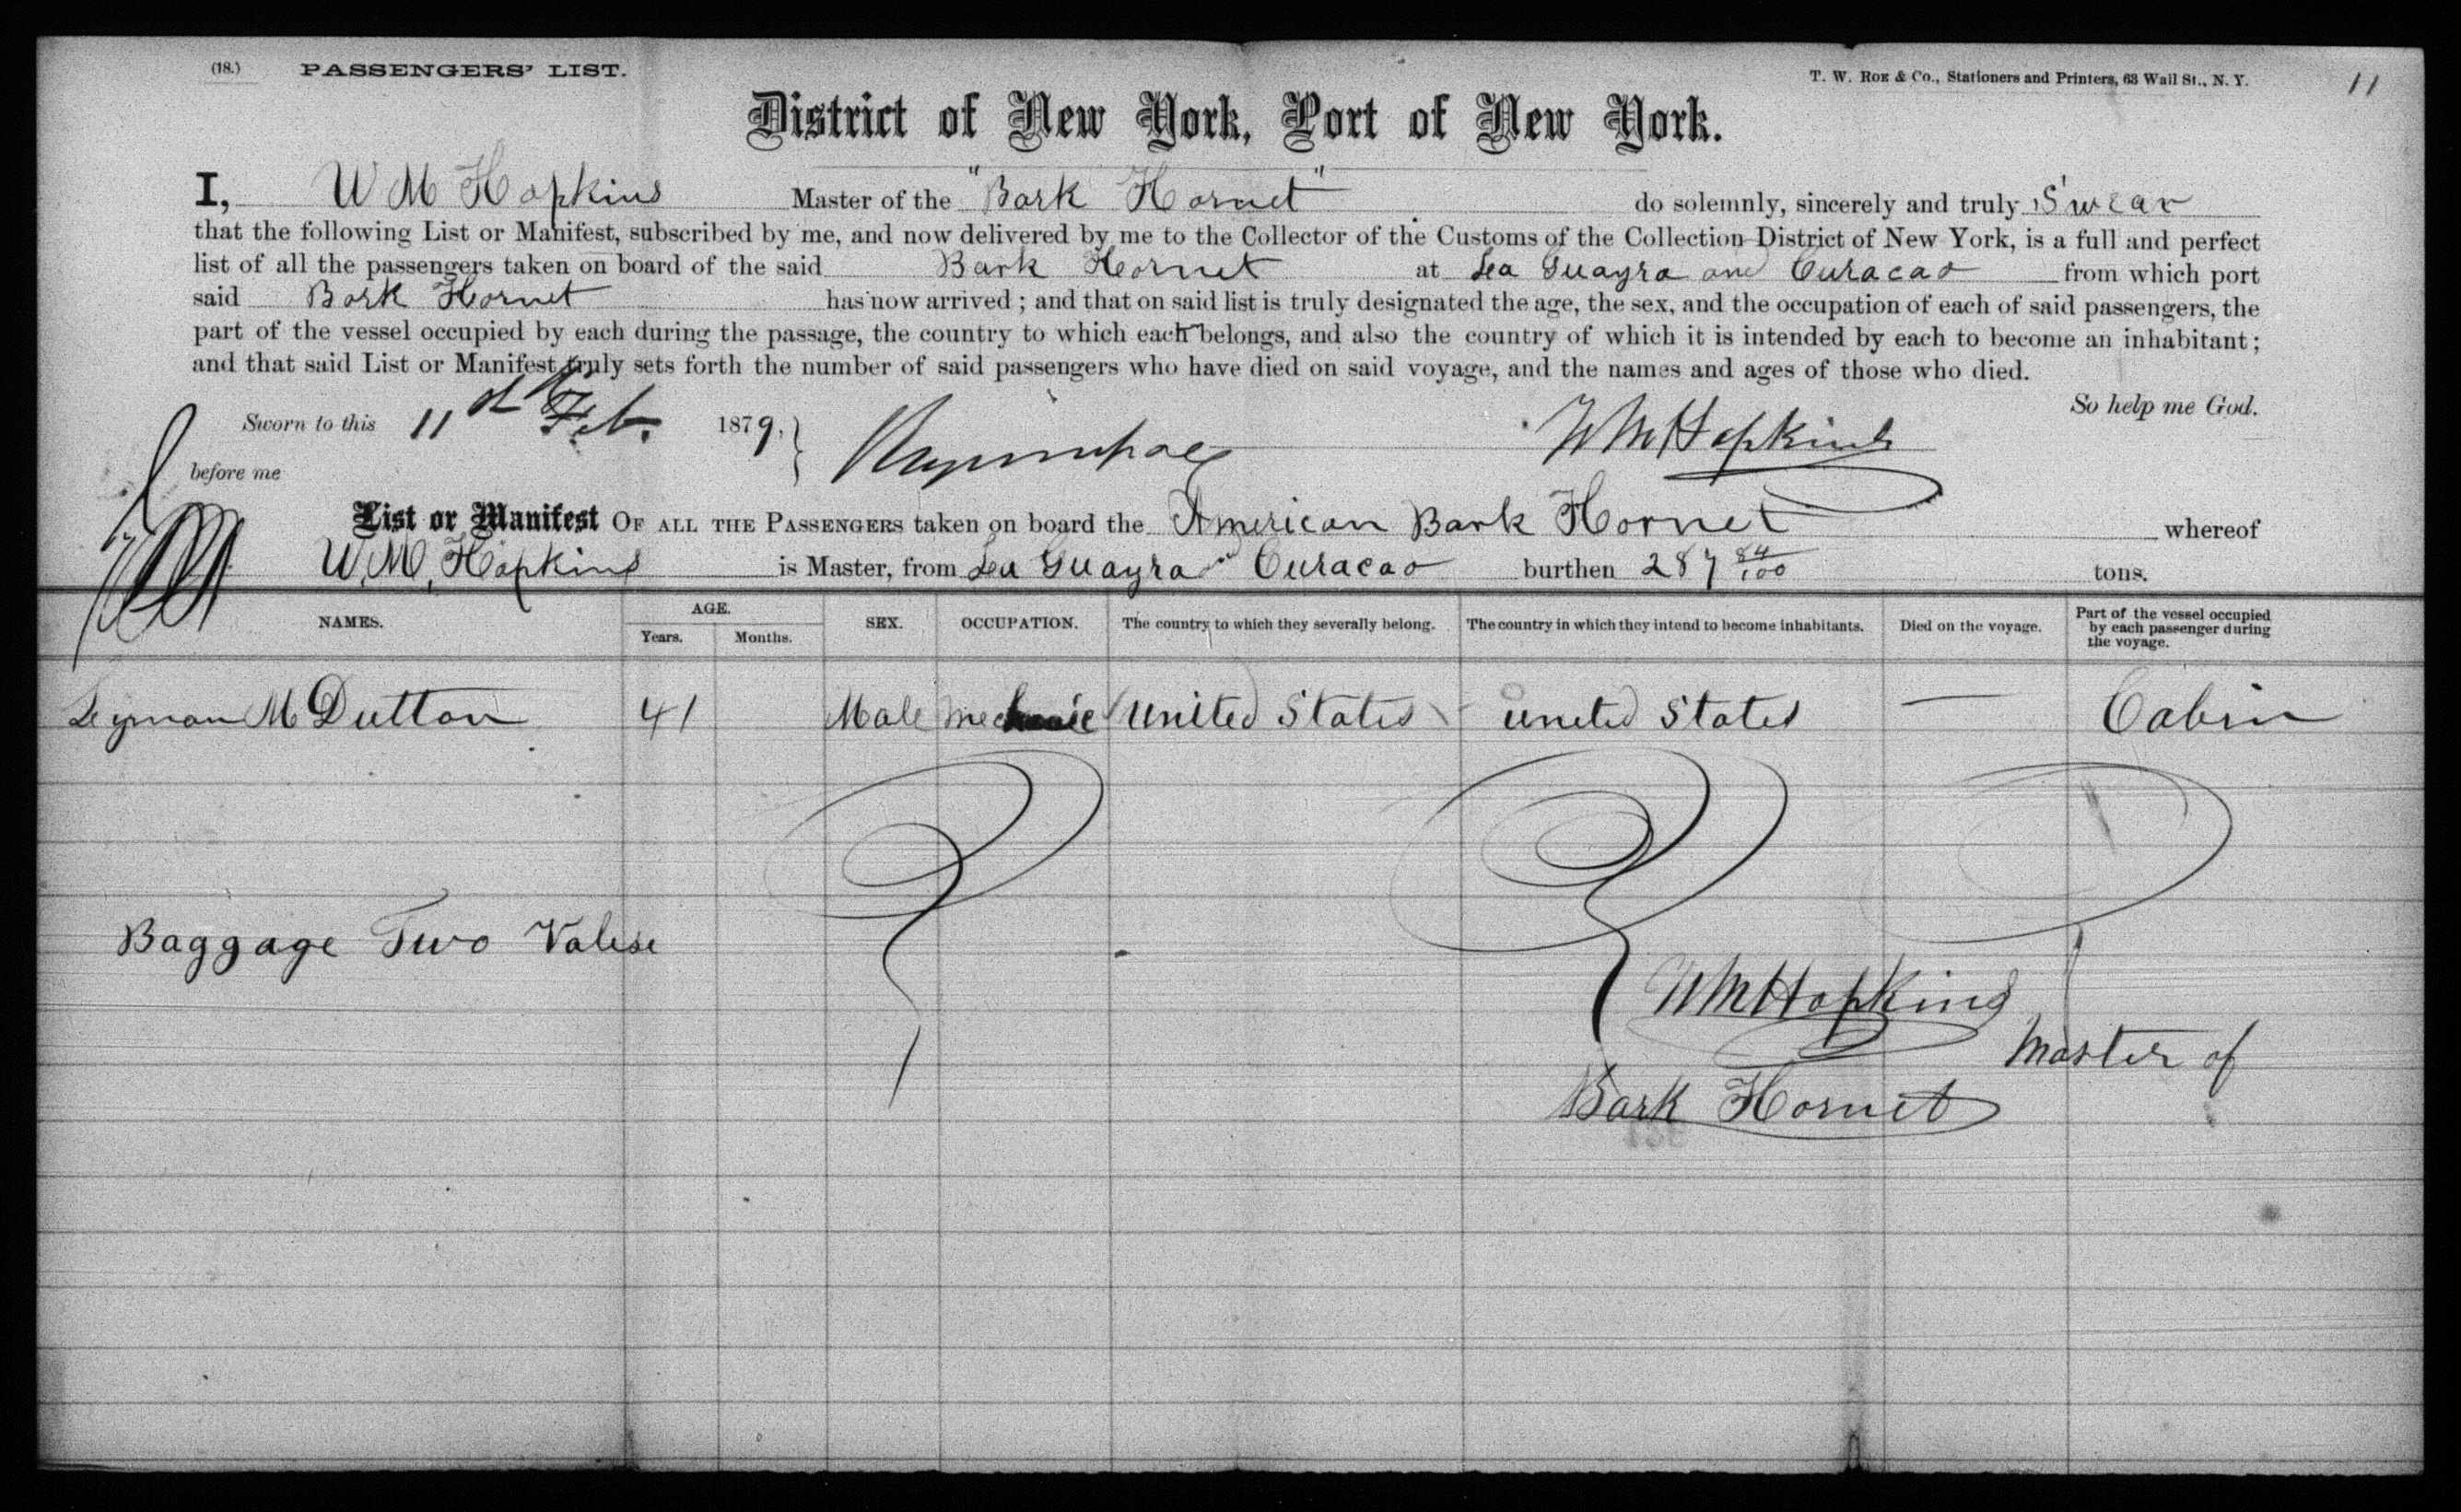 (18.) PASSENGERS' LIST. T. W. ROE & Co., Stationers and Printers, 63 Wall St., N. Y. 11
District of New York, Port of New York.
I, W M Hopkins Master of the "Bark Hornet" do solemnly, sincerely and truly Swear
that the following List or Manifest, subscribed by me, and now delivered by me to the Collector of the Customs of the Collection District of New York, is a full and perfect
list of all the passengers taken on board of the said Bark Hornet at Lea Guayra and Curacao from which port
said Bark Hornet has now arrived; and that on said list is truly designated the age, the sex, and the occupation of each of said passengers, the
part of the vessel occupied by each during the passage, the country to which each belongs, and also the country of which it is intended by each to become an inhabitant;
and that said List or Manifest truly sets forth the number of said passengers who have died on said voyage, and the names and ages of those who died.
So help me God.
Sworn to this 11th Feb. 1879, W M Hopkins
before me
List or Manifest OF ALL THE PASSENGERS taken on board the American Bark Hornet whereof
W. M. Hopkins is Master, from Lea Guayra Curacao burthen 287 84/100 tons.
NAMES. AGE. Years. Months. SEX. OCCUPATION. The country to which they severally belong. The country in which they intend to become inhabitants. Died on the voyage. Part of the vessel occupied by each passenger during the voyage.
Leyman M Dutton 41 Male Mechanic United States United States — Cabin
Baggage Two Valise
W M Hopkins
Master of
Bark Hornet